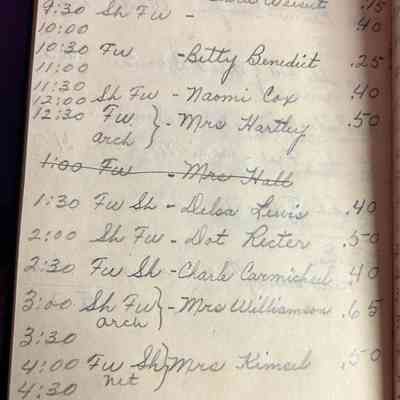 9:30 Sh Fw - .15
10:00 .40
10:30 Fw - Betty Benedict .25
11:00
11:30 Sh Fw - Naomi Cox .40
12:00
12:30 Fw } - Mrs Hartley .50
arch
1:00 Fw - Mrs Hall
1:30 Fw Sh - Delsa Lewis .40
2:00 Sh Fw - Dot Recter .50
2:30 Fw Sh - Charle Carmichael .40
3:00 Sh Fw } - Mrs Williamson .65
arch
3:30
4:00 Fw Sh } Mrs Kimsel .50
net
4:30